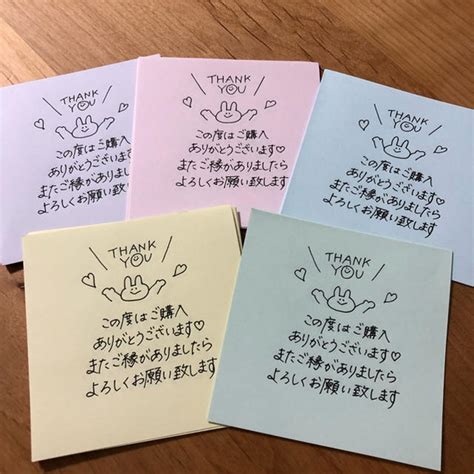 THANK
YOU
この度はご購入
ありがとうございます
またご縁がありましたら
よろしくお願い致します
THANK
YOU
この度はご購入
ありがとうございます♡
またご縁がありましたら
よろしくお願い致します
THANK
YOU
この度はご購入
ありがとうございます♡
またご縁がありましたら
よろしくお願い致します
THANK
YOU
この度はご購入
ありがとうございます♡
またご縁がありましたら
よろしくお願い致します
THANK
YOU
この度はご購入
ありがとうございます♡
またご縁がありましたら
よろしくお願い致します